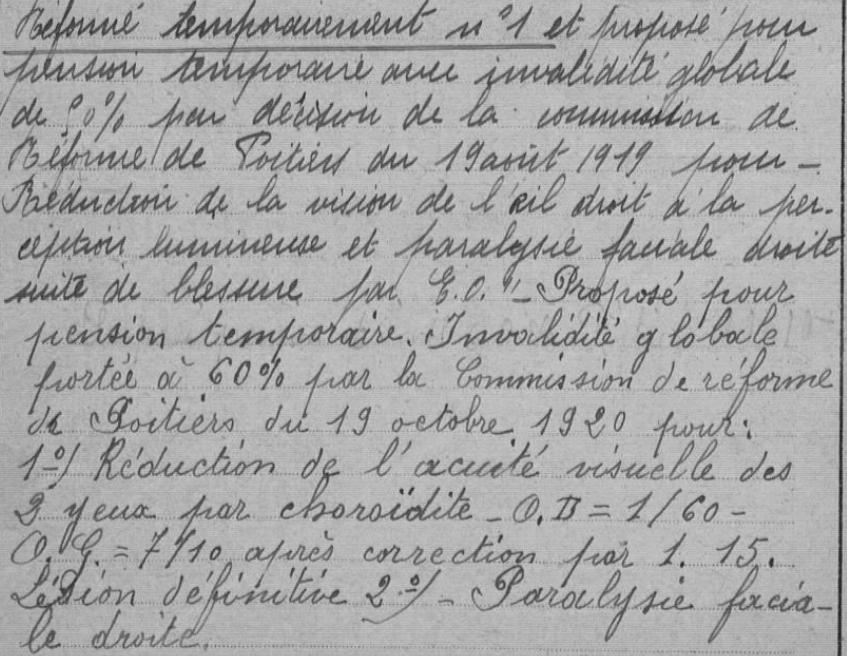 Réformé temporairement n°1 et proposé pour
pension temporaire avec invalidité globale
de 50% par décision de la commission de
Réforme de Poitiers du 19 août 1919 pour –
Réduction de la vision de l'œil droit à la per-
ception lumineuse et paralysie faciale droite
suite de blessure par E.O." – Proposé pour
pension temporaire. Invalidité globale
portée à 60% par la Commission de réforme
de Poitiers du 19 octobre 1920 pour:
1º/ Réduction de l'acuité visuelle des
2 yeux par choroïdite – O.D = 1/60 –
O.G. = 7/10 après correction par 1.15.
Lésion définitive 2º/ – Paralysie facia-
le droite.